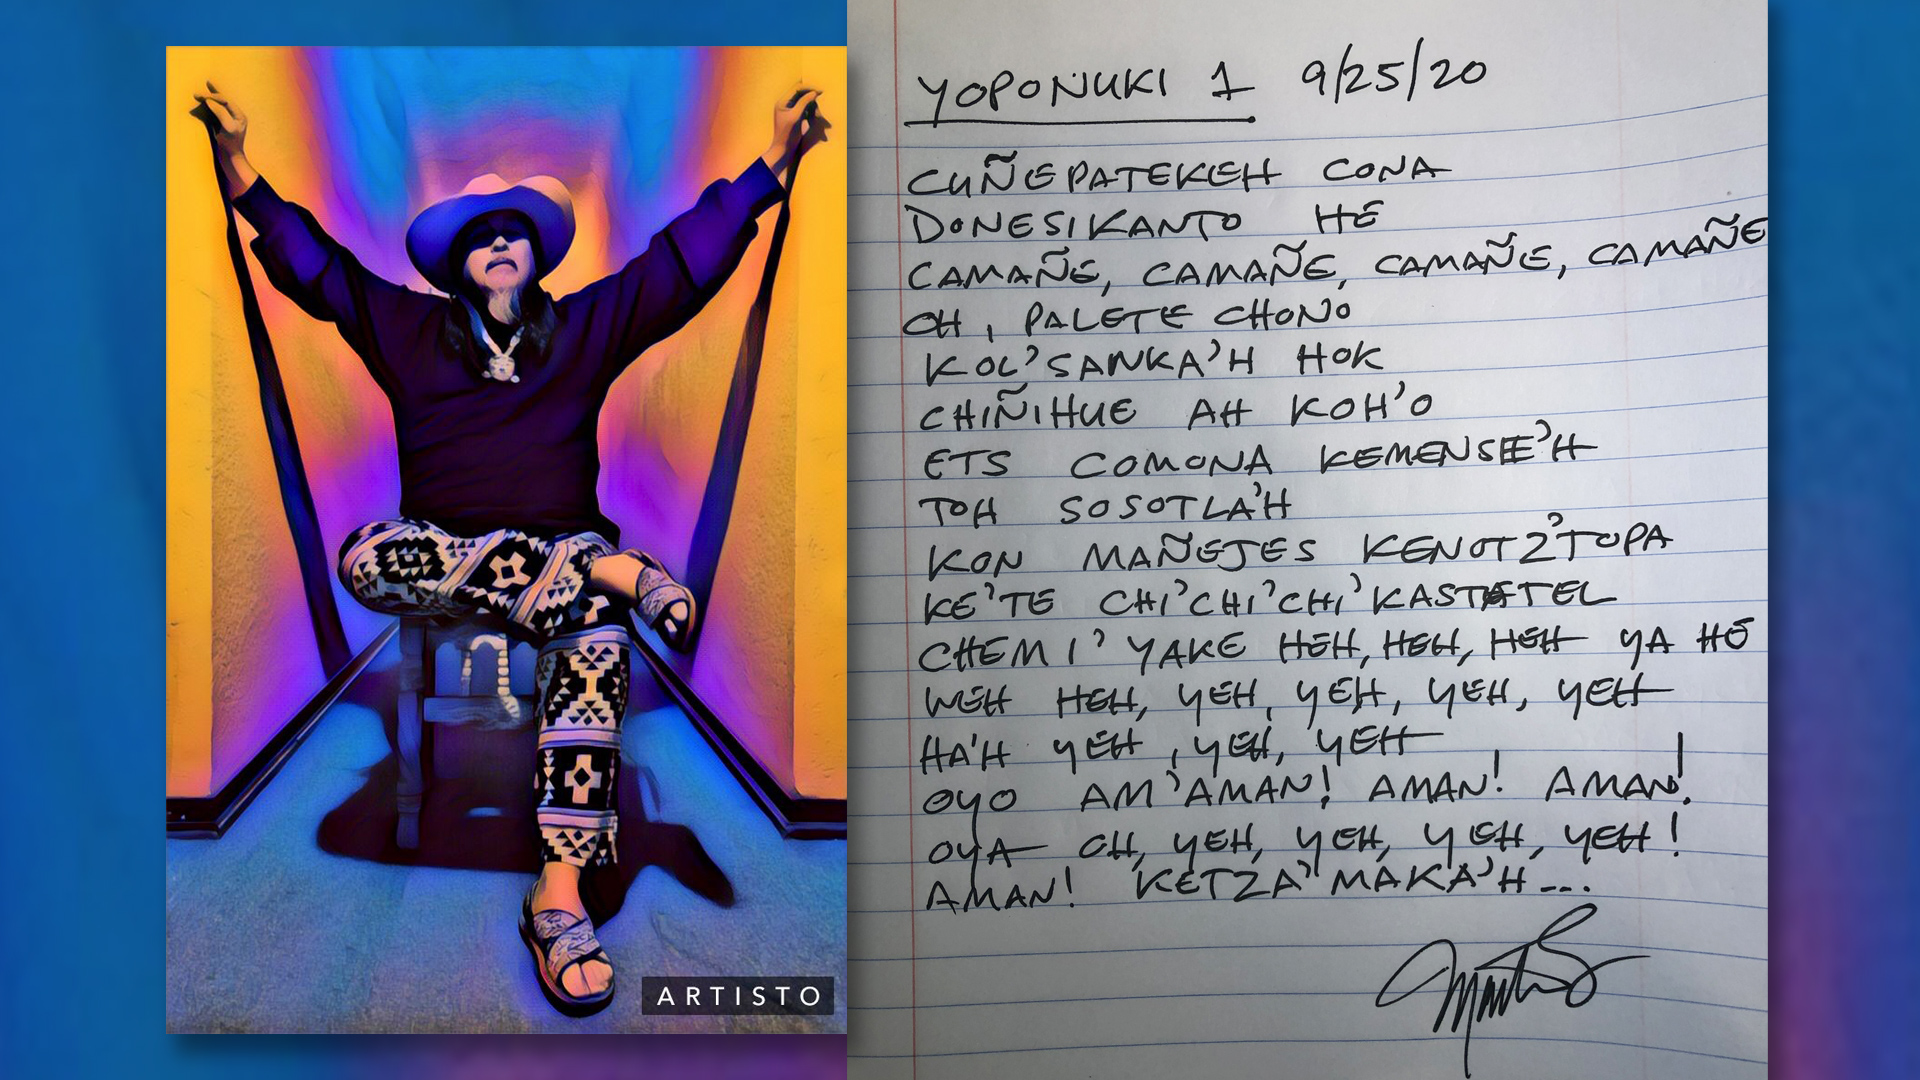 YOPONUKI 1 9/25/20
CUÑEPATEKEH CONA
DONESIKANTO HE
CAMAÑE, CAMAÑE, CAMAÑE, CAMAÑE
OH, PALETE CHONO
KOL'SANKA'H HOK
CHIÑIHUE AH KOH'O
ETS COMONA KEMENSE'H
TOH SOSOTLA'H
KON MAÑEJES KENOTZ'TOPA
KE'TE CHI'CHI'CHI'KASTETEL
CHEMI'YAKE HEH, HEH, HEH YA HE
WEH HEH, YEH, YEH, YEH, YEH
HA'H YEH, YEH, YEH
OYO AM'AMAN! AMAN! AMAN!
OYA OH, YEH, YEH, YEH, YEH!
AMAN! KETZA'MAKA'H---
ARTISTO